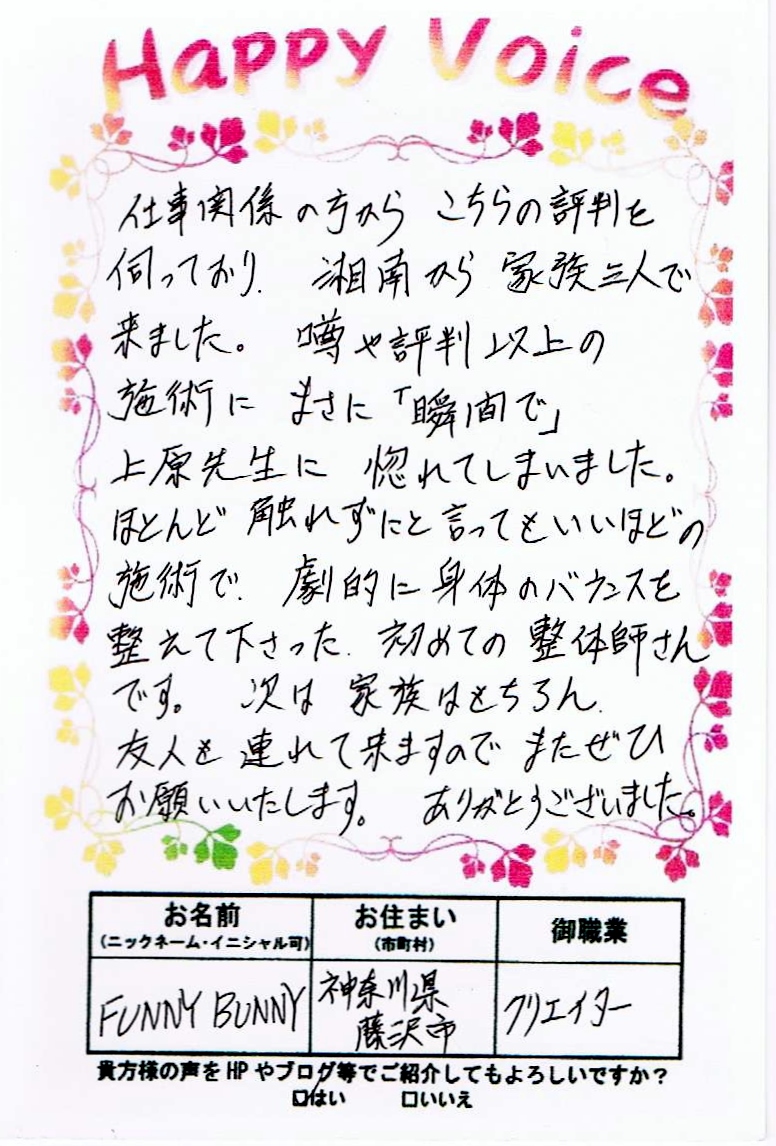 Happy Voice
仕事関係の方から こちらの評判を
伺っており、 湘南から 家族三人で
来ました。 噂や評判以上の
施術に まさに「瞬間で」
上原先生に 惚れてしまいました。
ほとんど 触れずにと言ってもいいほどの
施術で、 劇的に身体のバランスを
整えて下さった、初めての 整体師さん
です。 次は 家族はもちろん、
友人も 連れて来ますので またぜひ
お願いいたします。 ありがとうございました。
お名前 お住まい 御職業
(ニックネーム・イニシャル可) (市町村)
FUNNY BUNNY 神奈川県 クリエイター
藤沢市
貴方様の声をHPやブログ等でご紹介してもよろしいですか?
☑はい □いいえ